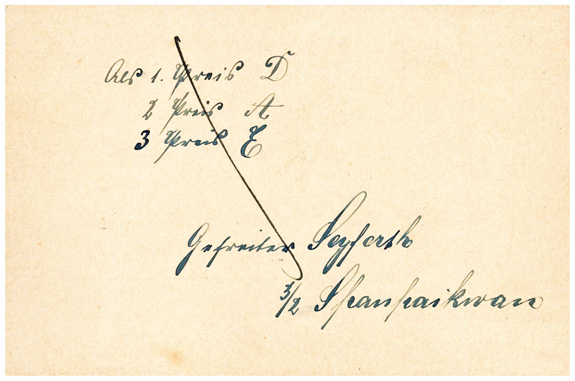 Als 1. Preis D
2 Preis A
3 Preis E
Gefreiter Seyfarth
3/2 Shanhaikwan